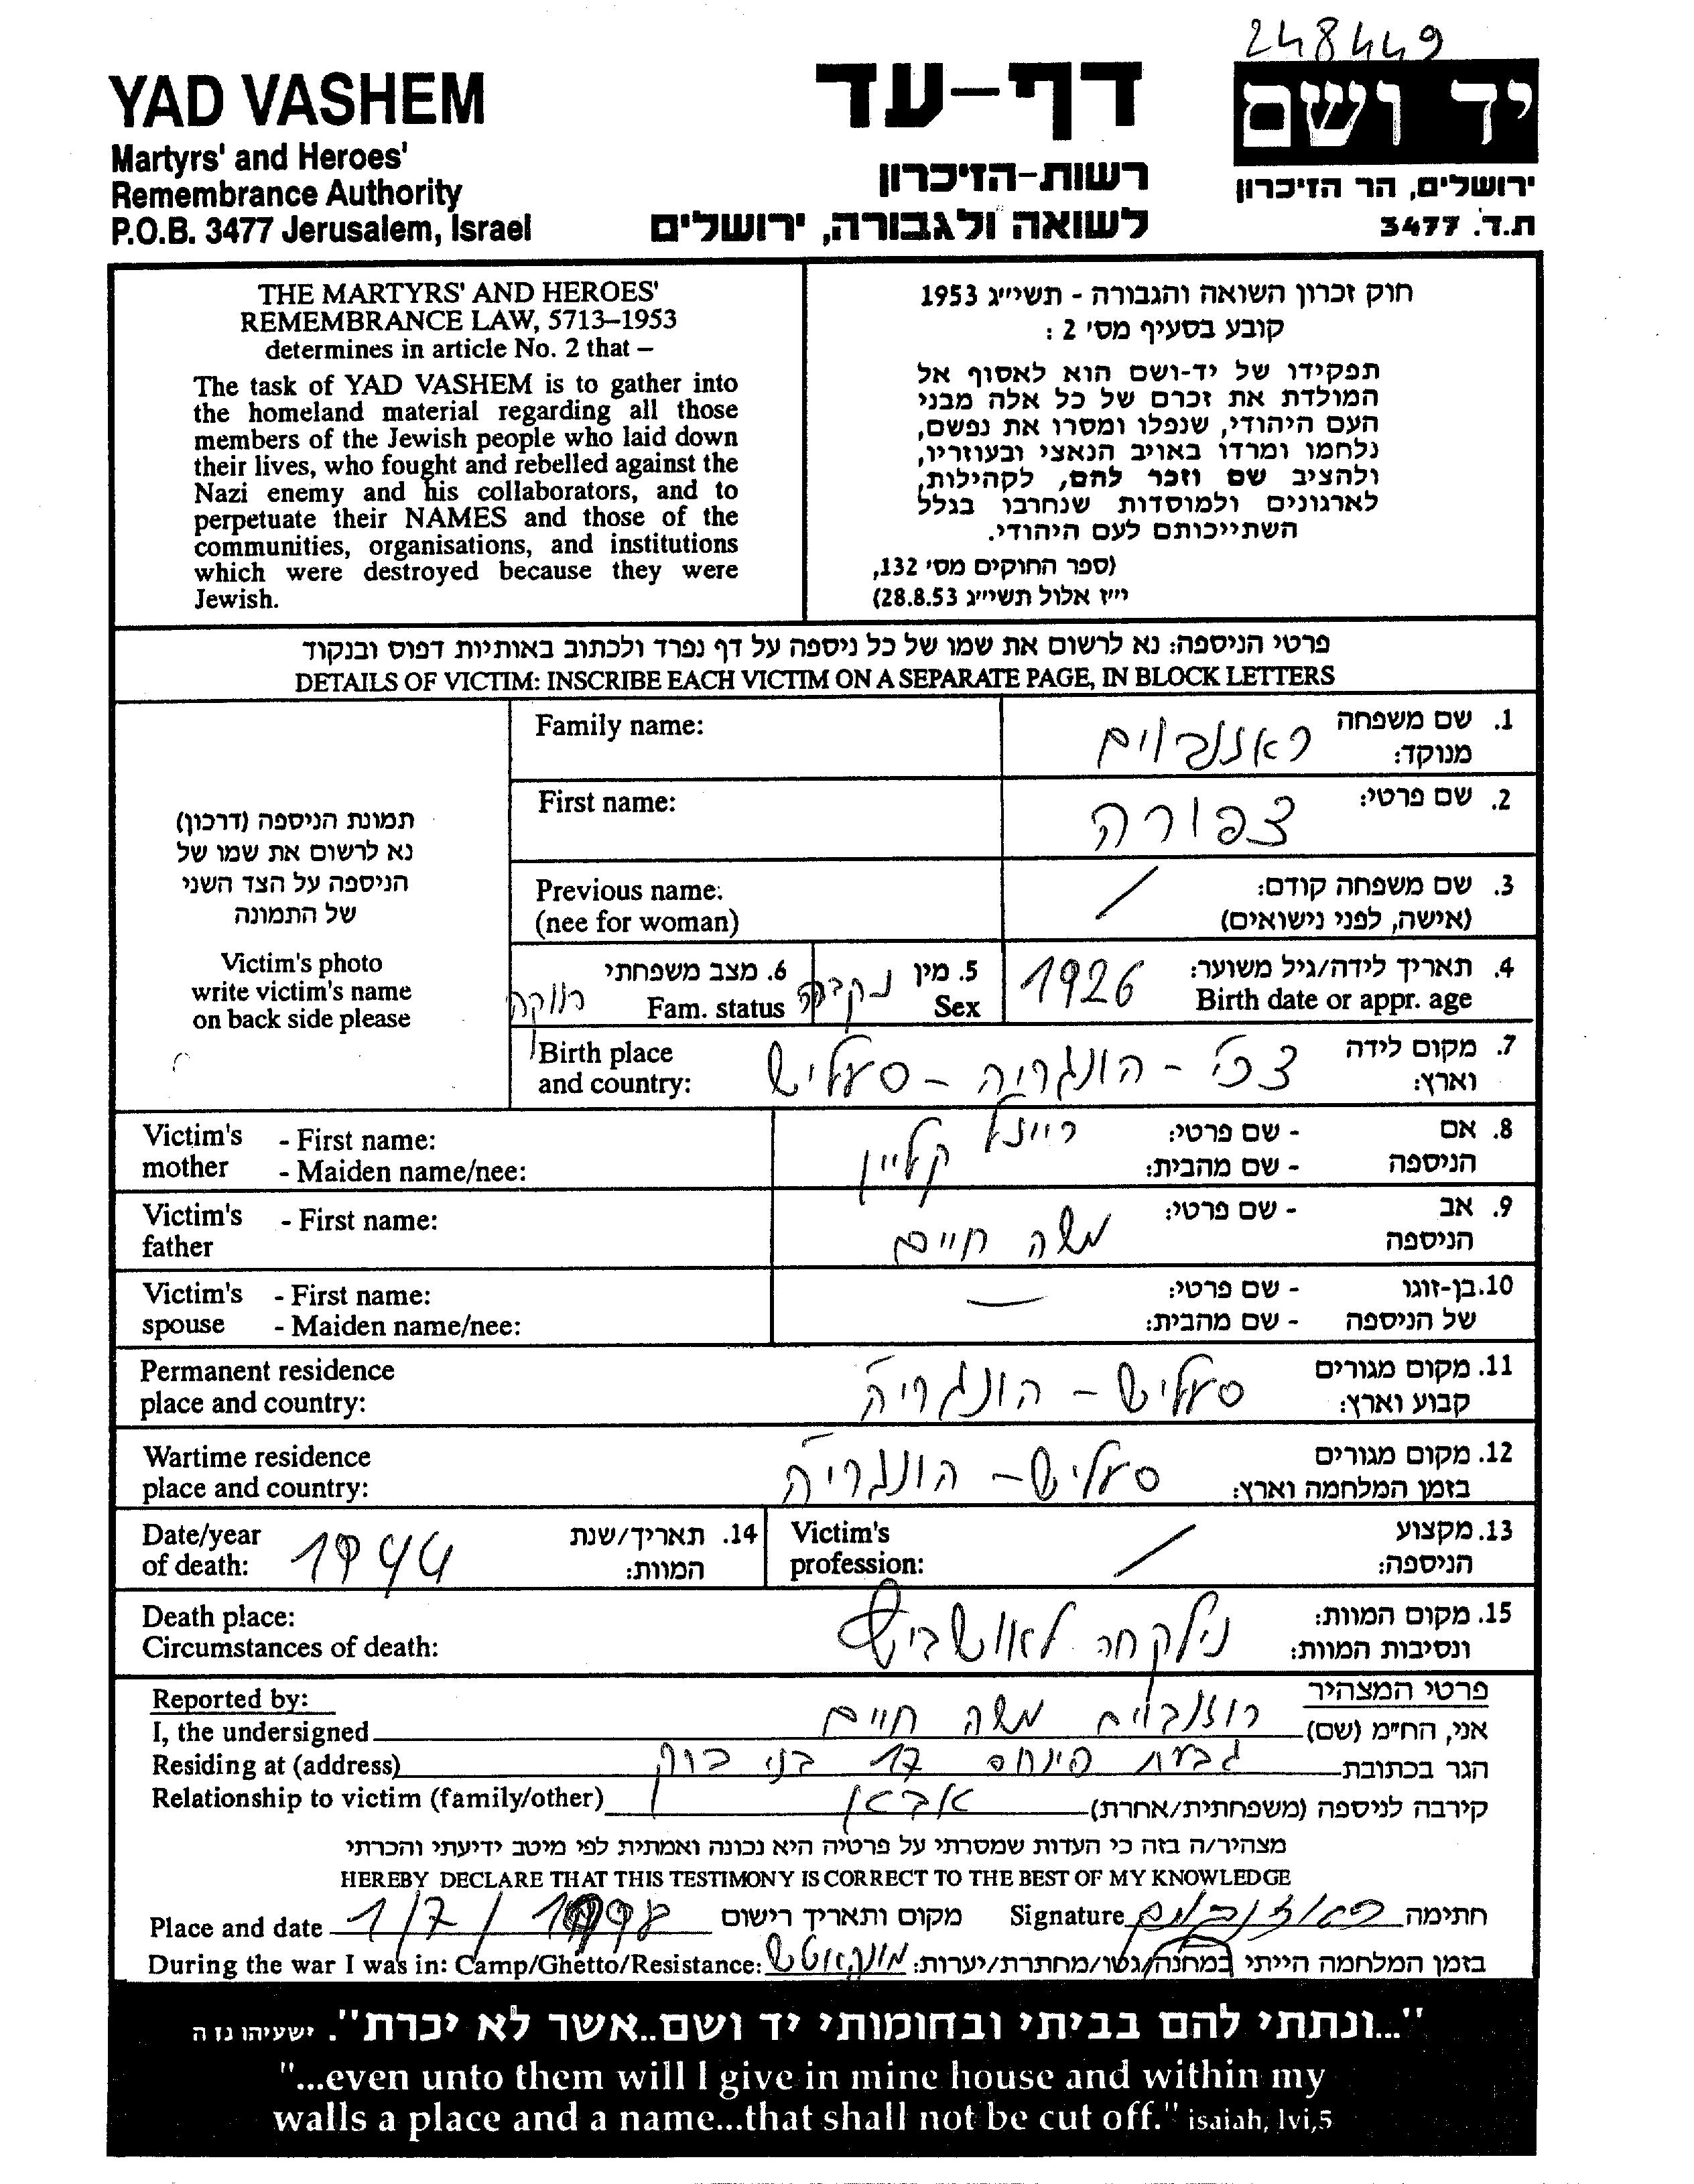 248449
YAD VASHEM
Martyrs' and Heroes'
Remembrance Authority
P.O.B. 3477 Jerusalem, Israel
דף-עד
רשות-הזיכרון
לשואה ולגבורה, ירושלים
יד ושם
ירושלים, הר הזיכרון
ת.ד. 3477
THE MARTYRS' AND HEROES'
REMEMBRANCE LAW, 5713–1953
determines in article No. 2 that –
The task of YAD VASHEM is to gather into
the homeland material regarding all those
members of the Jewish people who laid down
their lives, who fought and rebelled against the
Nazi enemy and his collaborators, and to
perpetuate their NAMES and those of the
communities, organisations, and institutions
which were destroyed because they were
Jewish.
חוק זכרון השואה והגבורה - תשי״ג 1953
קובע בסעיף מס׳ 2 :
תפקידו של יד-ושם הוא לאסוף אל
המולדת את זכרם של כל אלה מבני
העם היהודי, שנפלו ומסרו את נפשם,
נלחמו ומרדו באויב הנאצי ובעוזריו,
ולהציב שם וזכר להם, לקהילות,
לארגונים ולמוסדות שנחרבו בגלל
השתייכותם לעם היהודי.
(ספר החוקים מס׳ 132,
י״ז אלול תשי״ג 28.8.53)
פרטי הניספה: נא לרשום את שמו של כל ניספה על דף נפרד ולכתוב באותיות דפוס ובנקוד
DETAILS OF VICTIM: INSCRIBE EACH VICTIM ON A SEPARATE PAGE, IN BLOCK LETTERS
תמונת הניספה (דרכון)
נא לרשום את שמו של
הניספה על הצד השני
של התמונה
Victim's photo
write victim's name
on back side please
1. שם משפחה
מנוקד:
ראזנבוים
Family name:
2. שם פרטי:
צפורה
First name:
3. שם משפחה קודם:
(אישה, לפני נישואים)
/
Previous name:
(nee for woman)
4. תאריך לידה/גיל משוער:
Birth date or appr. age
1926
5. מין נקבה
Sex
6. מצב משפחתי
Fam. status
רווקה
7. מקום לידה
וארץ:
הונגריה - סעליש
Birth place
and country:
8. אם
הניספה
- שם פרטי: רייזל
- שם מהבית: קליין
Victim's
mother
- First name:
- Maiden name/nee:
9. אב
הניספה
- שם פרטי:
משה חיים
Victim's
father
- First name:
10. בן-זוגו
של הניספה
- שם פרטי:
- שם מהבית:
—
Victim's
spouse
- First name:
- Maiden name/nee:
11. מקום מגורים
קבוע וארץ:
סעליש - הונגריה
Permanent residence
place and country:
12. מקום מגורים
בזמן המלחמה וארץ:
סעליש - הונגריה
Wartime residence
place and country:
13. מקצוע
הניספה:
/
Victim's
profession:
14. תאריך/שנת
המוות:
1944
Date/year
of death:
15. מקום המוות:
ונסיבות המוות:
נילקחה לאושביץ
Death place:
Circumstances of death:
פרטי המצהיר
Reported by:
אני, הח״מ (שם) רוזנבוים משה חיים
I, the undersigned
הגר בכתובת גבעת פינחס 17 בני ברק
Residing at (address)
קירבה לניספה (משפחתית/אחרת)
Relationship to victim (family/other)
מצהיר/ה בזה כי העדות שמסרתי על פרטיה היא נכונה ואמתית לפי מיטב ידיעתי והכרתי
HEREBY DECLARE THAT THIS TESTIMONY IS CORRECT TO THE BEST OF MY KNOWLEDGE
Place and date 1/7/1998 מקום ותאריך רישום Signature ראזנבוים חתימה
בזמן המלחמה הייתי במחנה/גטו/מחתרת/יערות: מונקאטש
During the war I was in: Camp/Ghetto/Resistance:
"...ונתתי להם בביתי ובחומותי יד ושם..אשר לא יכרת". ישעיהו נו ה
"...even unto them will I give in mine house and within my
walls a place and a name...that shall not be cut off." isaiah, lvi,5